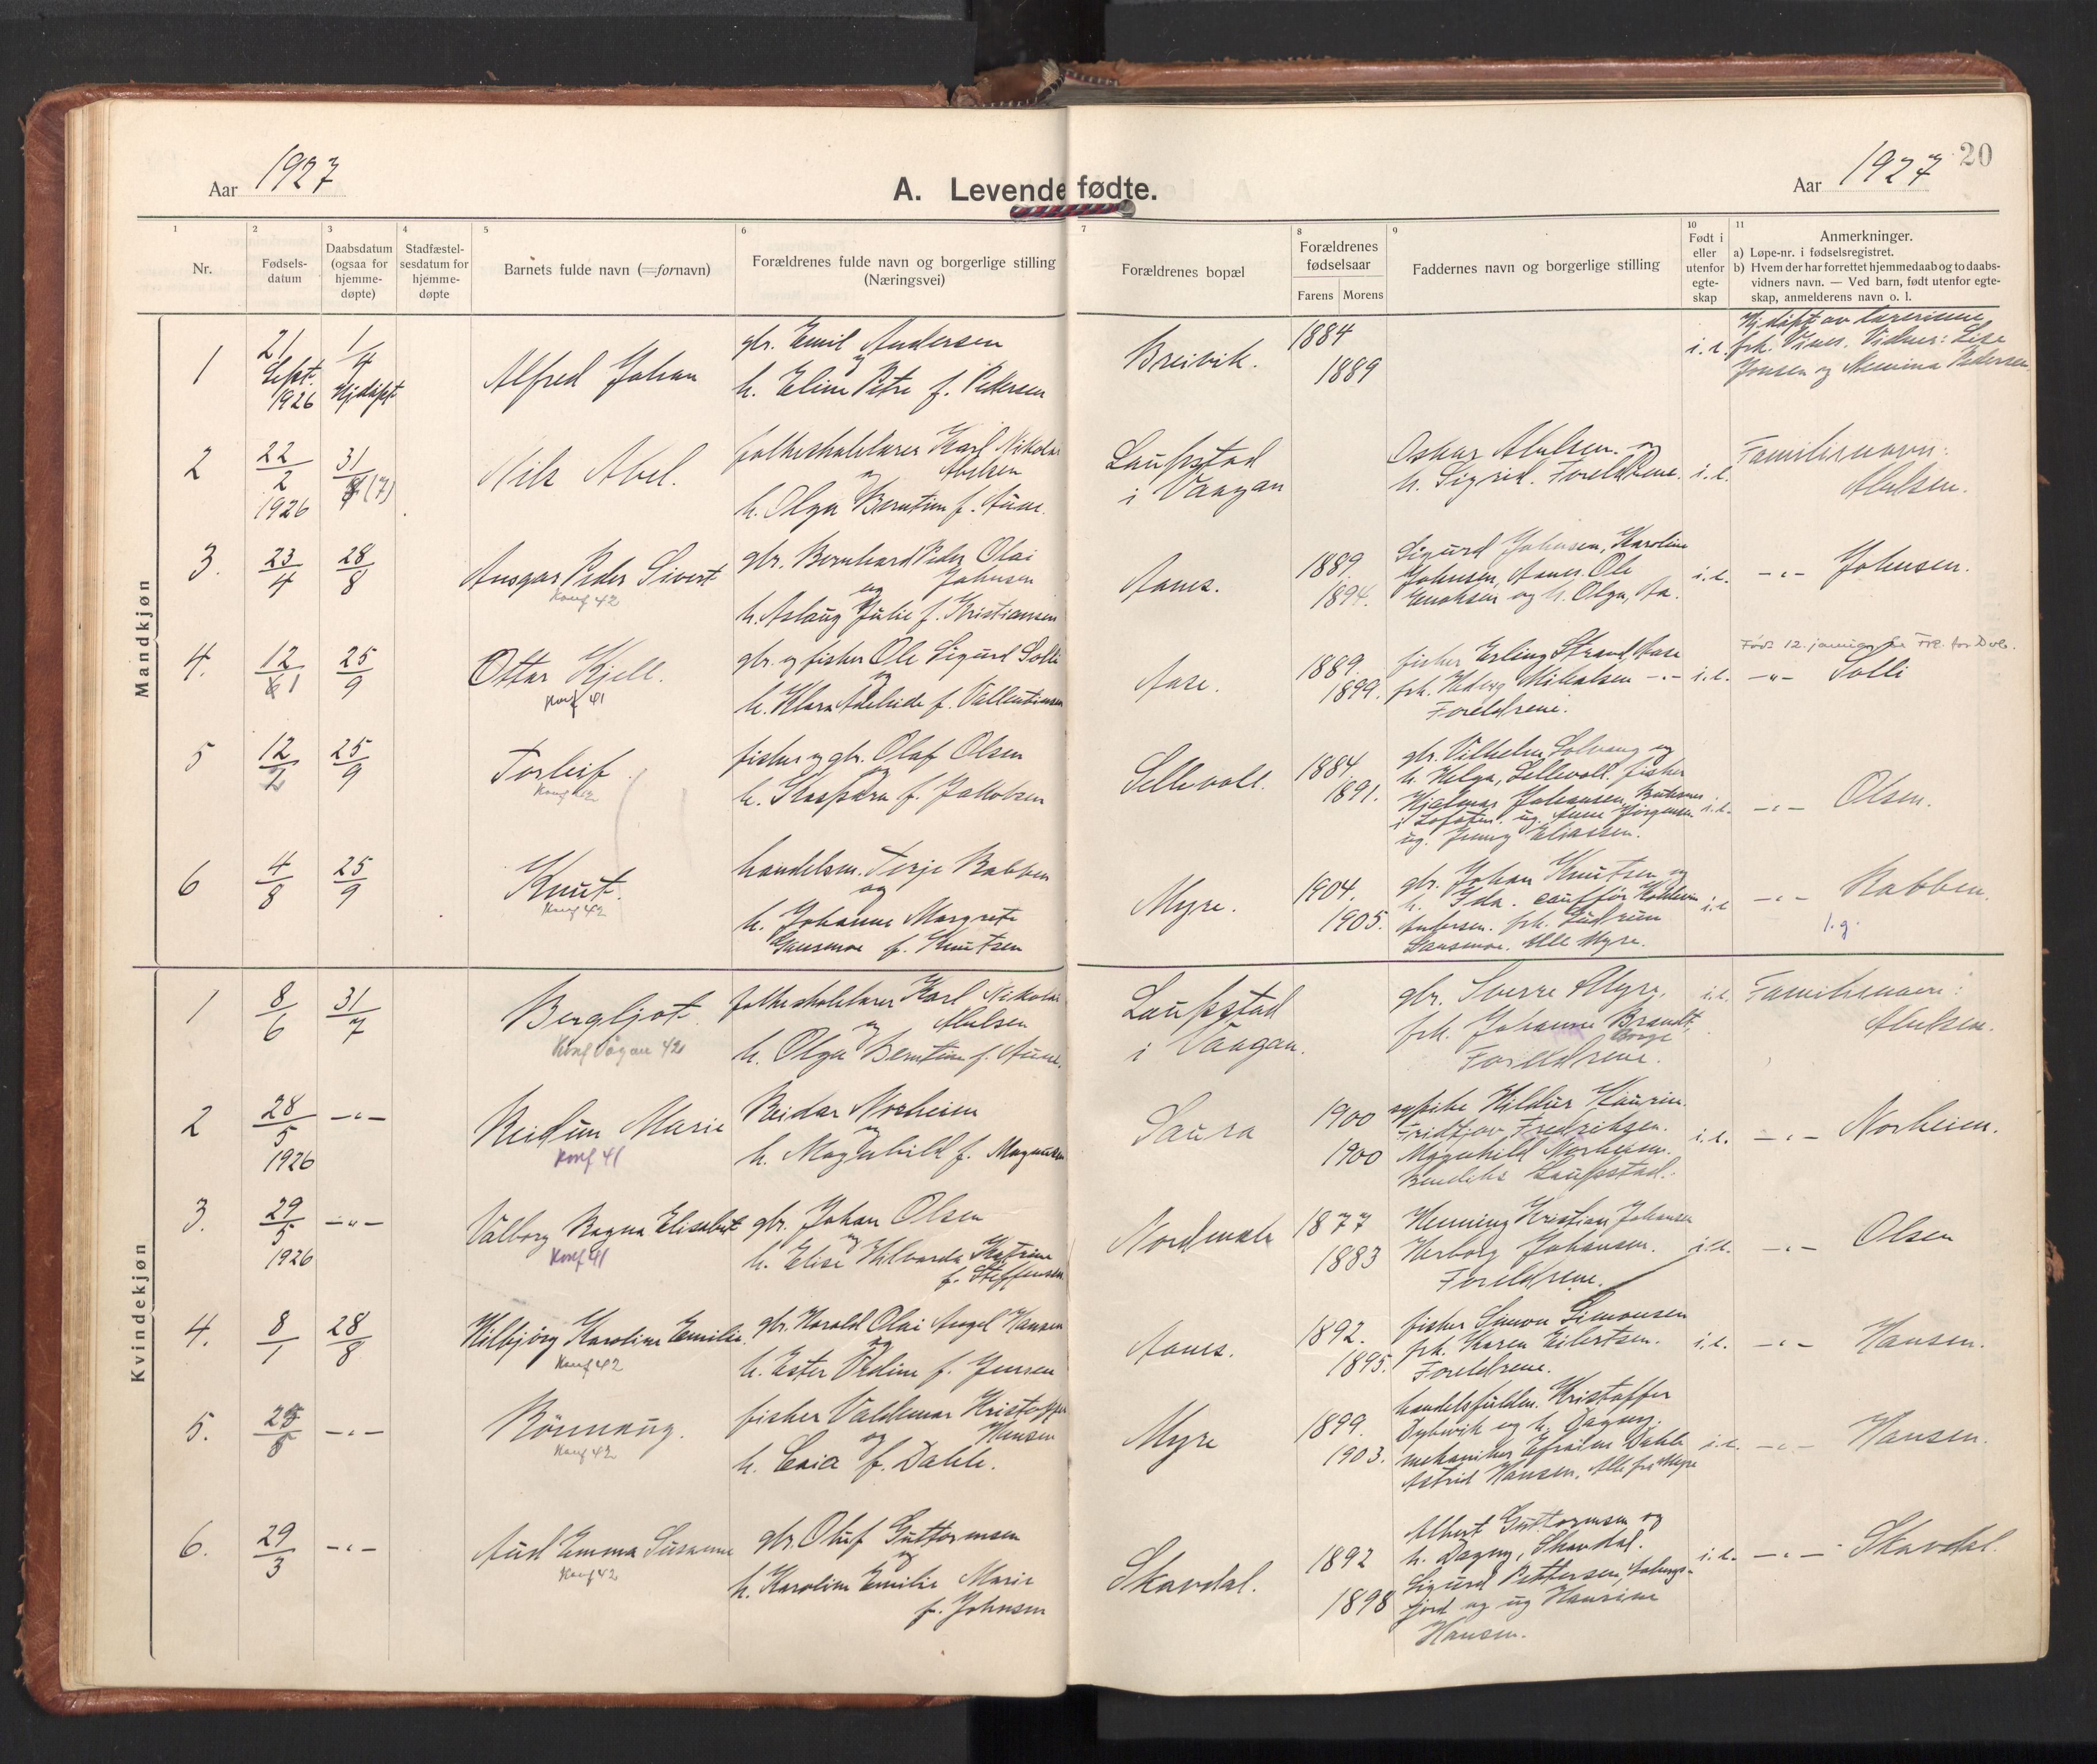 Aar 1927
A. Levende fødte.
Aar 1927
20
1
2
3
4
5
6
7
8
9
10
11
Nr.
Fødsels-
datum
Daabsdatum
(ogsaa for
hjemme-
døpte)
Stadfæstel-
sesdatum for
hjemme-
døpte
Barnets fulde navn (=fornavn)
Forældrenes fulde navn og borgerlige stilling
(Næringsvei)
Forældrenes bopæl
Forældrenes
fødselsaar
Farens Morens
Faddernes navn og borgerlige stilling
Født i
eller
utenfor
egte-
skap
Anmerkninger.
a) Løpe-nr. i fødselsregistret.
b) Hvem der har forrettet hjemmedaab og to daabs-
vidners navn. — Ved barn, født utenfor egte-
skap, anmelderens navn o. l.
Mandkjøn
1
21
Sept.
1926
1/4
Hjdøpt
Alfred Johan
gbr. Emil Andersen
og
h. Eline Petre f. Pedersen
Breivik.
1884
1889
i.e.
Hjdøpt av lærerinne
frk. Vines. Vidner: Lise
Jonsen og Pedersen
2
22/2
1926
31/7 (7)
Nils Abel.
folkeskolelærer Karl Nikolai
og Abelsen
h. Olga Berntine f. Aune.
Laupstad
i Vaagan
Oskar Abelsen og
h. Sigrid. Foreldrene.
i.e.
Familienavn:
Abelsen.
3.
23/4
28/8
Ansgar Peder Sivert
Konf 42
gbr. Bernhard Peder Olai
og Johnsen
h. Aslaug Julie f. Kristiansen
Aanes.
1889
1894.
Sigurd Johnsen, Karoline
Johnsen, Aanes. Ole
Enoksen og h. Olga, Aa.
i.e.
-"- Johnsen.
4.
12/1
25/9
Ottar Kjell.
Konf 41
gbr. og fisker Ole Sigurd Solli
og
h. Klara Adelheide f. Vallentinsen
Aase.
1889.
1899.
fisker Erling Strand, Aase
frk. Hedvig Mikalsen -"-
Foreldrene.
i.e.
Født 12. januar
-"- Solli
5
12/2
25/9
Torleif
Konf 42
fisker og gbr. Olaf Olsen
og
h. Kaspara f. Jakobsen
Sellevoll.
1884.
1891.
gbr. Vilhelm Solvang og
h. Helga, Sellevoll. fisker
Hjalmar Johansen, Buksnes
i Lofoten. ug. Anne Jørgensen
ug. Jenny Eliassen.
i.e.
-"- Olsen.
6
4/8
25/9
Knut.
Konf 42
handelsm. Terje Rabben
og
h. Johanne Margrete
Gausmoe f. Knutsen
Myre.
1904.
1905.
gbr. Johan Knutsen og
h. Ida.
Andersen. frk. Gudrun
Gausmoe. Alle Myre.
i.e
-"- Rabben.
1.g.
Kvindekjøn
1
8/6
31/7
Bergljot
Konf Vågan 42
folkeskolelærer Karl Nikolai
og Abelsen
h. Olga Berntine f. Aune.
Laupstad
i Vaagan.
gbr. Sverre Myre,
frk. Johanne Brandt,
Borge
Foreldrene.
i.e.
Familienavn:
Abelsen.
2
28/5
1926
-"-
Reidun Marie
Konf 41
Reidar Norheim
og
h. Magnhild f. Magnussen
Saura
1900
1900
sypike Hildur Haurin.
Fridtjov Fredriksen.
Magnhild Norheim.
Laupstad.
i.e.
-"- Norheim.
3.
29/5
1926
-"-
Valborg Ragna Elisabet
Konf 41
gbr. Johan Olsen
og
h. Elise Hilvarda Katrine
f. Steffensen
Nordmela
1877
1883
Henning Kristian Johansen
Herborg Johansen.
Foreldrene.
i.e.
-"- Olsen
4.
8/1
28/8
Hilbjørg Karoline Emilie.
Konf 42
gbr. Harald Olai Angel Hansen
og
h. Ester Ovedine f. Jensen
Aanes.
1892.
1895.
fisker Simon Simonsen
frk. Karen Eilertsen.
Foreldrene.
i.e.
-"- Hansen.
5.
-"-
Rönnaug.
Konf 42
fisker Valdemar Kristoffer
og Hansen
h. Laia f. Dahle.
Myre
1899.
1903.
handelsfuldm. Kristoffer
Dybvik og h. Dagny.
mekaniker Efraim Dahle
Astrid Hansen. Alle fra Myre
i.e.
-"- Hansen.
6.
29/3
-"-
Aud Emma Susanne
Konf 42
gbr. Oluf Guttormsen
og
h. Karoline Emilie Marie
f. Johnsen
Skavdal.
1892
1898
Albert Guttormsen og
h. Dagny, Skavdal.
Sigurd Pettersen,
fjord og ug Hansine
Hansen.
i.e.
-"- Skavdal.